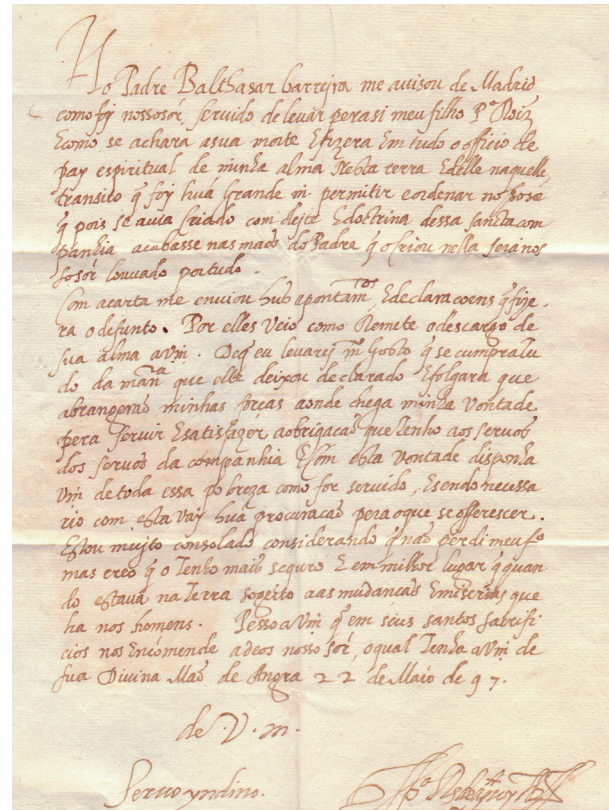 Ho Padre Balthasar barreyra me avisou de Madrid
como foy nosso sõr servido de levar pera si meu filho P.º Roiz
E como se achara a sua morte E fizera Em tudo o officio de
pay espiritual de minha alma Nesta terra E delle naquelle
transito q̃ foy huã Grande m permitir e ordenar nosso sõr
q̃ pois se avia criado com leite E doctrina dessa sancta com
panhia acabasse nas maõs do Padre q̃ o criou nella seia nos
so sõr louvado por tudo.
Com a carta me enviou hũs apontam.tos E declaracoens q̃ fize-
ra o defunto. Por elles vejo como Remate o descargo de
sua alma a vm. De q̃ eu levarey m.to Gosto q̃ se cumpra tu
do da man.ra que elle deixou declarado E folgara que
abrangeraõ minhas forças aonde chega minha vontade
pera servir E satisfazer a obrigaçaõ que tenho aos servos
dos servos da companhia E com esta vontade disponha
vm de toda essa pobreza como for servido, E sendo necessa
rio com esta vay huã procuracaõ pera o que se offerescer.
Estou muyto consolado considerando q̃ naõ perdi meu f.o
mas creo q̃ o tenho mais seguro E em milhor lugar q̃ quan
do estava na terra sogeito aas mudancas E miserias que
ha nos homens. Pesso a vm q̃ em seus santos sacrifi
cios nos Encomende a deos nosso sõr, o qual tenha a vm de
sua Divina Maõ de Angra 22 de Maio de 97.
de V. m.
Servo yndino.